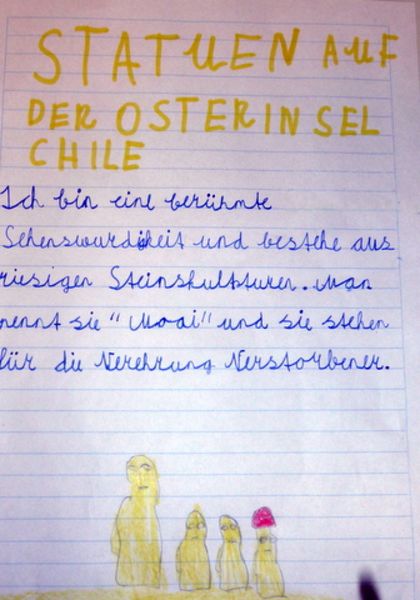 STATUEN AUF
DER OSTERINSEL
CHILE
Ich bin eine berühmte
Sehenswürdikeit und bestehe aus
riesigen Steinskulpturen. Man
nennt sie "Moai" und sie stehen
für die Verehrung Verstorbener.